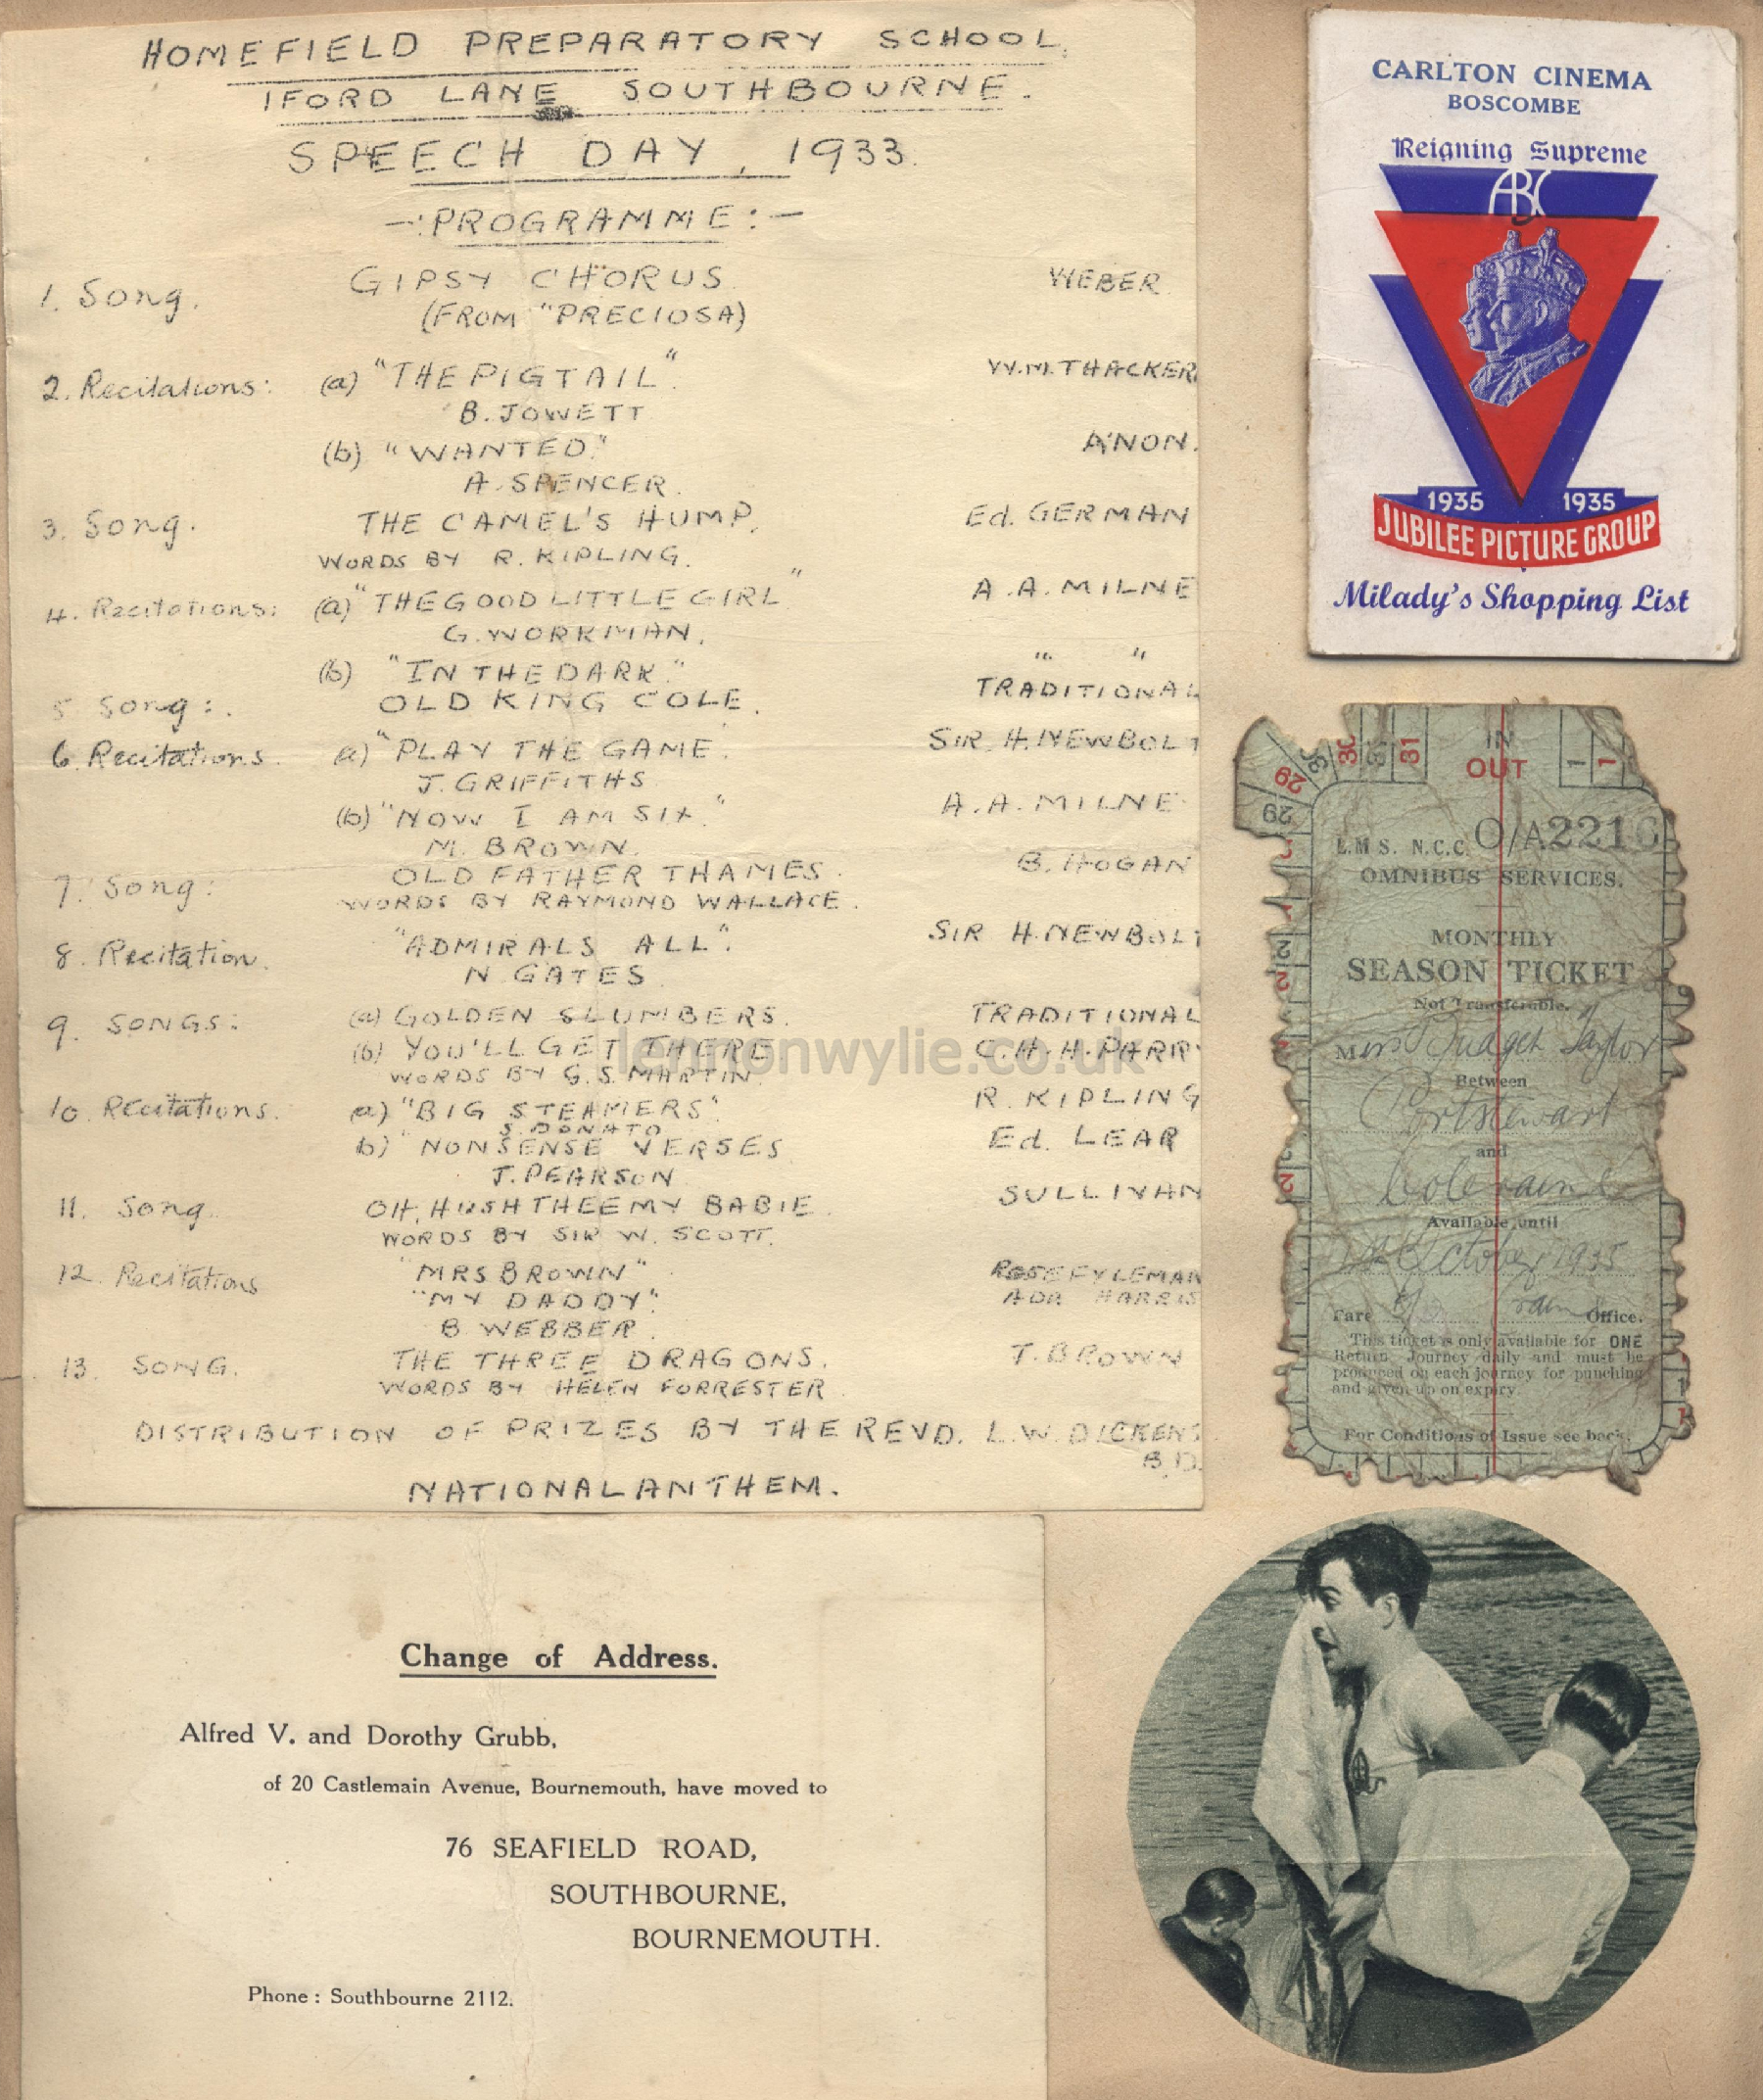 HOMEFIELD PREPARATORY SCHOOL,
IFORD LANE SOUTHBOURNE.
SPEECH DAY, 1933.
-:PROGRAMME:-
1. Song. GIPSY CHORUS. WEBER
(FROM "PRECIOSA)
2. Recitations: (a) "THE PIGTAIL". W.M. THACKER
B. JOWETT
(b) "WANTED." ANON.
A. SPENCER.
3. Song. THE CAMEL'S HUMP. Ed. GERMAN
WORDS BY R. KIPLING.
4. Recitations: (a) "THE GOOD LITTLE GIRL" A.A. MILNE
G. WORKMAN.
(b) "IN THE DARK." " "
5. Song:. OLD KING COLE. TRADITIONAL
6. Recitations. a) "PLAY THE GAME. SIR. H. NEWBOLT
J. GRIFFITHS
(b) "NOW I AM SIX." A.A. MILNE
M. BROWN.
7. Song: OLD FATHER THAMES. B. HOGAN
WORDS BY RAYMOND WALLACE.
8. Recitation. "ADMIRALS ALL". SIR H. NEWBOLT
N. GATES
9. SONGS: (a) GOLDEN SLUMBERS. TRADITIONAL
(b) YOU'LL GET THERE C.H.H. PARRY
WORDS BY G.S. MARTIN.
10. Recitations. a) "BIG STEAMERS". R. KIPLING
S. DONATO
b) "NONSENSE VERSES Ed. LEAR
J. PEARSON
11. Song OH, HUSH THEE MY BABIE. SULLIVAN
WORDS BY SIR W. SCOTT.
12. Recitations "MRS BROWN" ROSE FYLEMAN
"MY DADDY". ADA HARRIS
B WEBBER.
13. SONG. THE THREE DRAGONS. T. BROWN
WORDS BY HELEN FORRESTER.
DISTRIBUTION OF PRIZES BY THE REVD. L.W. DICKENS
B.D.
NATIONAL ANTHEM.
lennonwylie.co.uk
CARLTON CINEMA
BOSCOMBE
Reigning Supreme
ABC
1935 1935
JUBILEE PICTURE GROUP
Milady's Shopping List
29 30 31 IN 1
29 30 31 OUT 1
L.M.S. N.C.C. O/A2216
OMNIBUS SERVICES.
MONTHLY
SEASON TICKET
Not Transferable.
Mrs Taylor
Between
Portstewart
and
Coleraine
Available until
October 1935
Fare Office.
This ticket is only available for ONE
Return Journey daily and must be
produced on each journey for punching
and given up on expiry.
For Conditions of Issue see back.
Change of Address.
Alfred V. and Dorothy Grubb,
of 20 Castlemain Avenue, Bournemouth, have moved to
76 SEAFIELD ROAD,
SOUTHBOURNE,
BOURNEMOUTH.
Phone : Southbourne 2112.